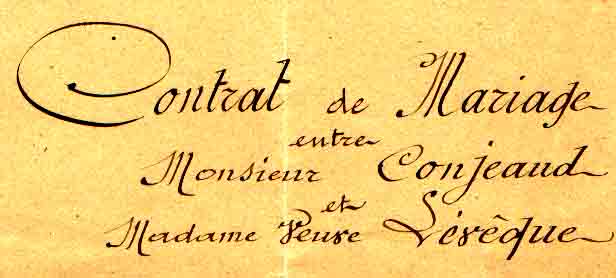 Contrat de Mariage
entre
Monsieur Conjeaud
et
Madame Veuve Lévêque